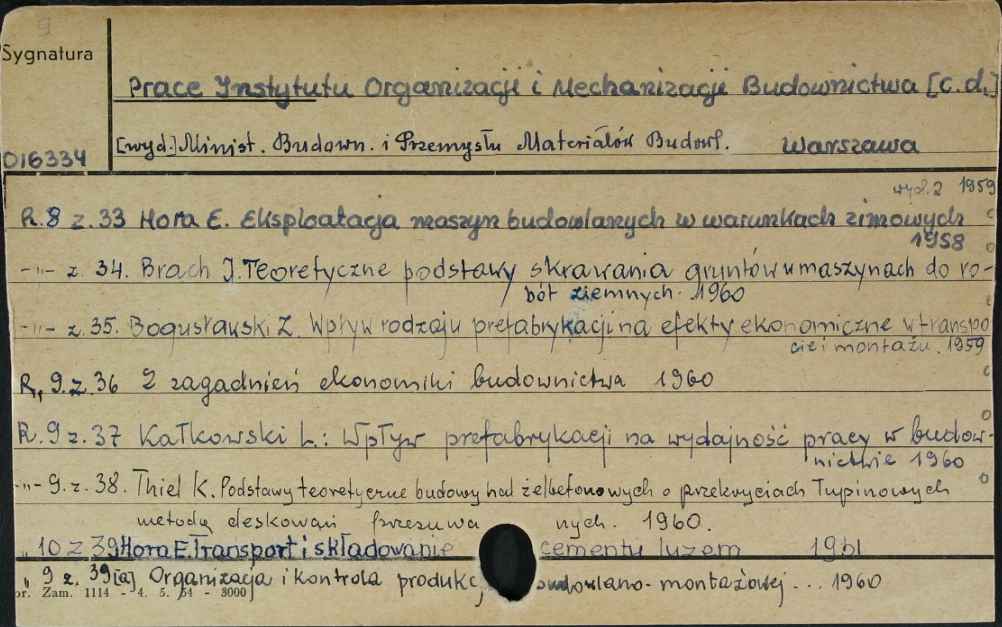 9
Sygnatura
Prace Instytutu Organizacji i Mechanizacji Budownictwa [c.d.]
016334
[wyd.] Minist. Budown. i Przemysłu Materiałów Budowl. Warszawa
wyd. 2 1959
R. 8 z. 33 Hora E. Eksploatacja maszyn budowlanych w warunkach zimowych
1958
-"- z. 34. Brach J. Teoretyczne podstawy skrawania gruntów w maszynach do ro-
bót ziemnych. 1960
-"- z. 35. Bogusławski Z. Wpływ rodzaju prefabrykacji na efekty ekonomiczne w transpo
cie i montażu. 1959
R. 9. z. 36 Z zagadnień ekonomiki budownictwa 1960
R. 9 z. 37 Kałkowski L.: Wpływ prefabrykacji na wydajność pracy w budow-
nictwie 1960
-"- 9. z. 38. Thiel K. Podstawy teoretyczne budowy hal żelbetonowych o przekryciach łupinowych
metodą deskowań przesuwa nych. 1960.
" 10 z 39 Hora E. Transport i składowanie cementu luzem 1961
" 9 z. 39[a] Organizacja i kontrola produkc budowlano-montażowej ... 1960
or. Zam. 1114 - 4. 5. 54 - 3000